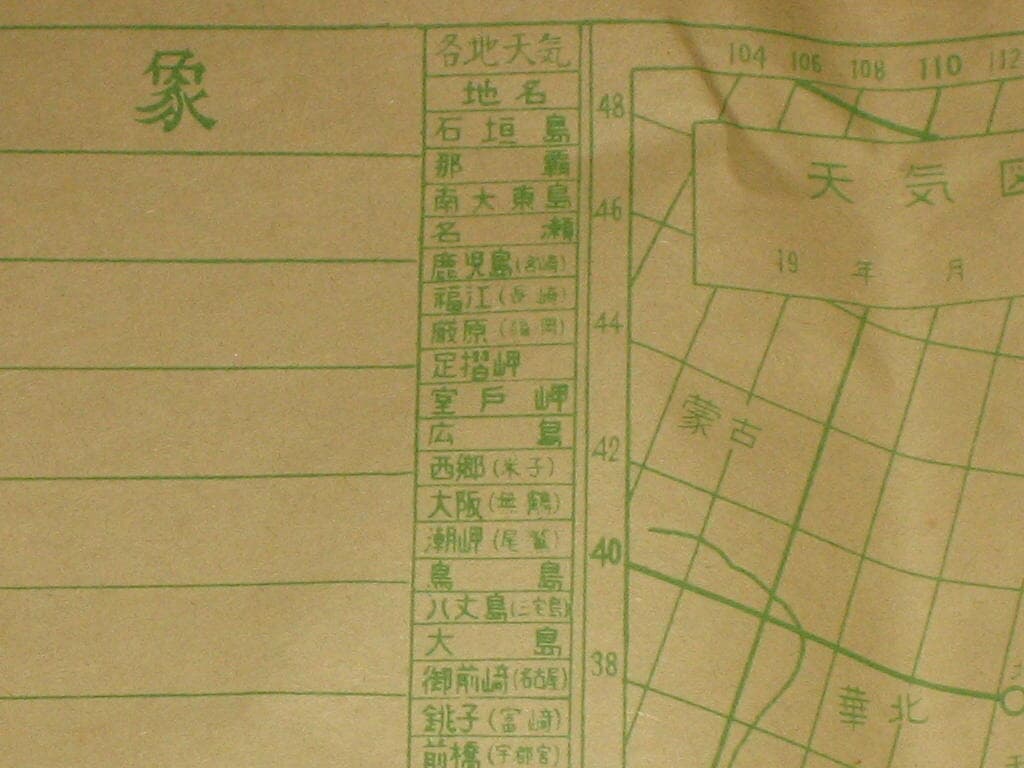 象
各地天気
地名
石垣島
那覇
南大東島
名瀬
鹿児島(宮崎)
福江(長崎)
厳原(福岡)
足摺岬
室戸岬
広島
西郷(米子)
大阪(舞鶴)
潮岬(尾鷲)
鳥島
八丈島(三宅島)
大島
御前崎(名古屋)
銚子(富崎)
前橋(宇都宮)
104 106 108 110 112
48
46
44
42
40
38
天気図
19 年 月
蒙古
華北